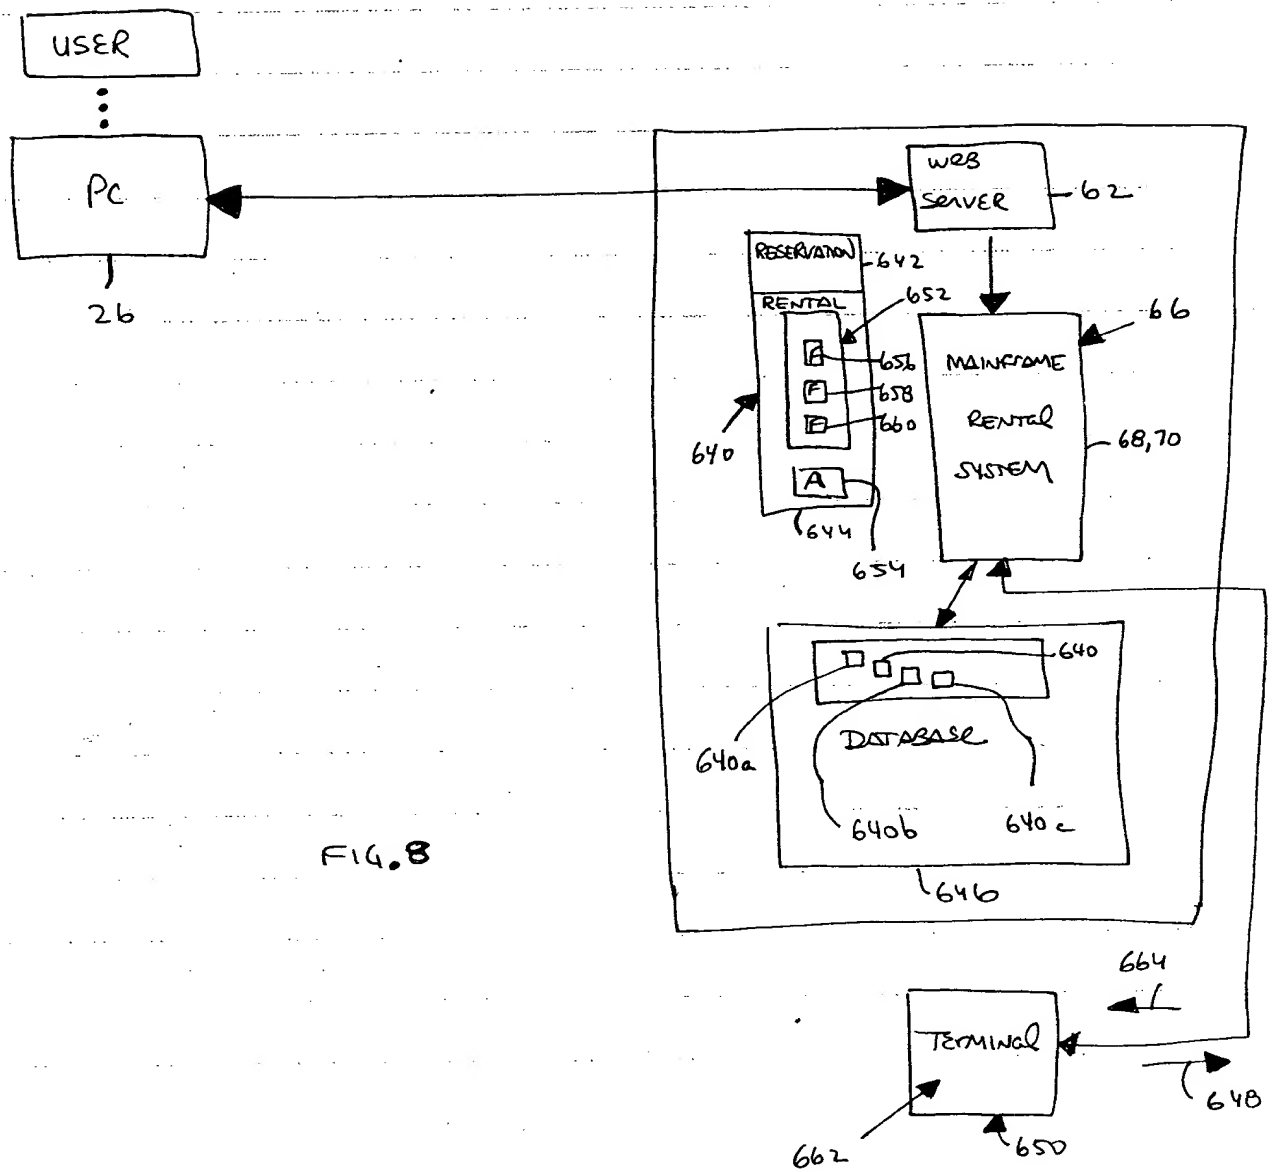 USER
PC
26
WEB
SERVER
62
RESERVATION
642
RENTAL
652
66
F
656
F
658
F
660
640
MAINFRAME
RENTAL
SYSTEM
68,70
A
644
654
640
640a
DATABASE
640b
640c
646
FIG.8
664
TERMINAL
648
662
650